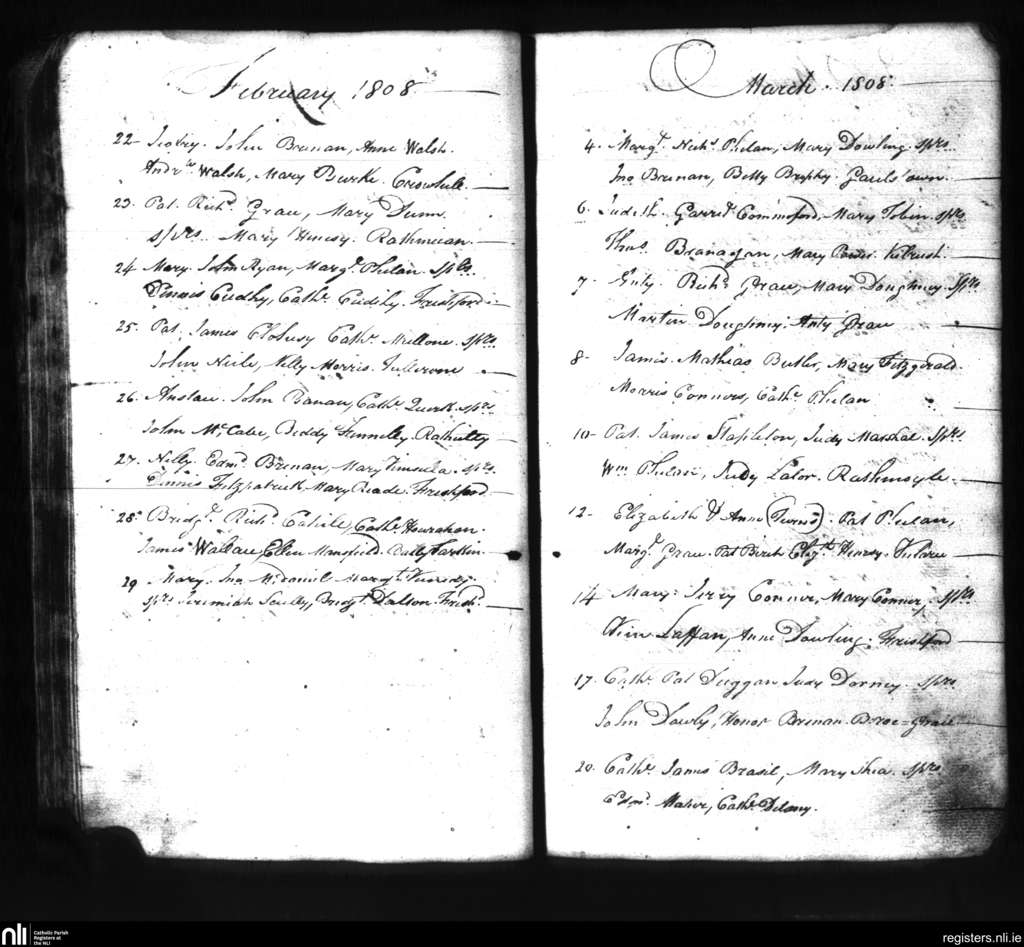 February 1808
22 - John Brenan, Anne Walsh.
Andrw Walsh, Mary Burke. Crowhill.
23. Pat. Richd Grau, Mary Dunn
sprs. Mary Henesy. Rathmuan.
24 Mary. John Ryan, Margt Phelan. sprs.
Dinnis Cudhy, Cathe Cudihy. Freshford
25. Pat. James Cathe Mullone. sprs.
John Neile, Nelly Morris. Tullerone
26. John Banan, Cathe Quirk. sprs
John McCabe, Biddy Fennelley.
27. Nelly. Edmd Brenan, Mary sprs.
Dinnis Fitzpatrick, Mary Reade. Freshford
28. Bridgt Richd Catile, Cathe Hourahan.
James Wallace, Ellen Mansfield. Larkin
29 Mary. Jno McDaniel Margt Kenedy.
sprs Jeremiah Scully, Bridgt Dalton. Fresh.
March. 1808.
4. Margt Nichs Phelan, Mary Dowling. sprs.
Jno Brenan, Betty Brophy.
6. Judith. Garret Commoford, Mary Tobin. sprs
Thos Branagan, Mary Power. Kilrush.
7 - Richd Grau, Mary Doughney. sprs.
Martin Doughney. Anty Grau
8 - James. Mathias Butler, Mary Fitzgerald.
Morris Connors, Cathe Phelan
10 - Pat. James Stapleton, Judy Marshal. sprs
Wm Phelan, Judy Lalor. Rathmoyle.
12 - Elizabeth & Anne (Twins). Pat Phelan,
Margt Grau. Pat Birch Elizth Henesy.
14 Mary: Jerry Connor, Mary Connor, sprs
Laffan, Anne Dowling. Freshford
17. Cathe Pat Duggan Judy Dorney. sprs.
John Dowly, Honor Brenan.
20. Cathe James Brasil, Mary Shea. sprs
Edmd Maher, Cathe Delany.
nli
Catholic Parish
Registers at
the NLI
registers.nli.ie